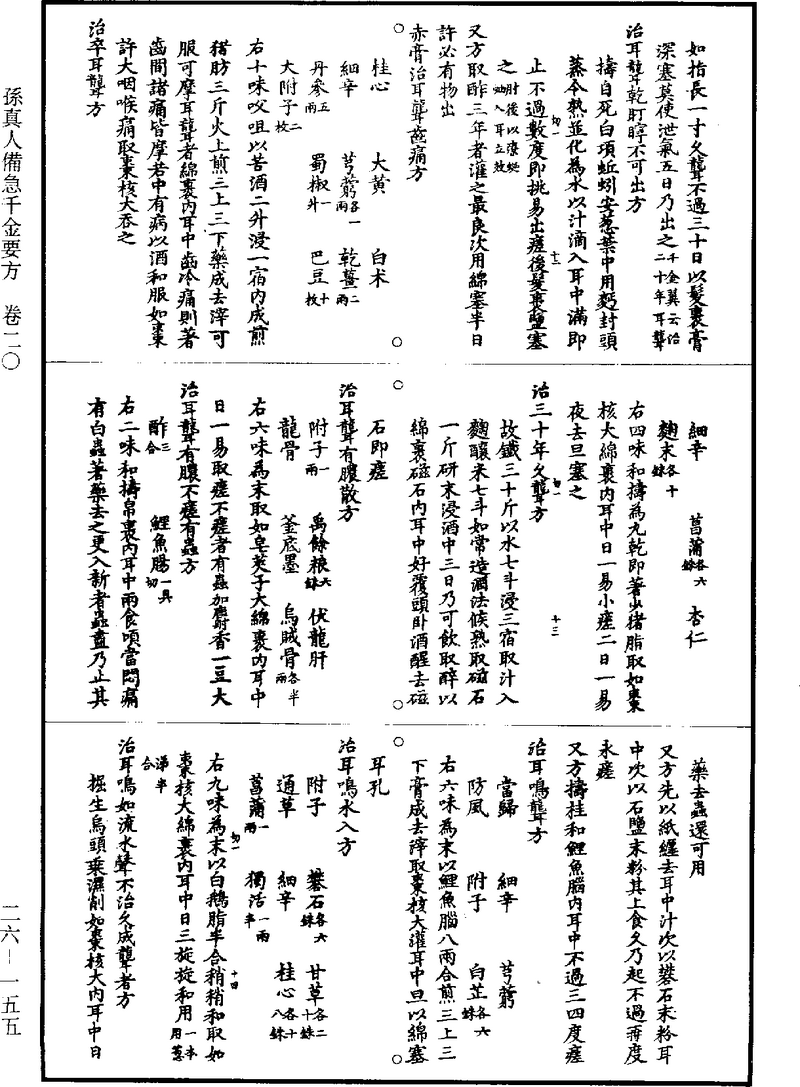 如指長一寸久聾不過三十日以髮裹膏
深塞莫使泄氣五日乃出之千金翼云治二十年耳聾
治耳聾乾盯聹不可出方
擣自死白項蚯蚓安蔥葉中用麪封頭
蒸令熟並化為水以汁滴入耳中滿即
止不過數度即挑易出瘥後髮裹鹽塞
之肘後以療蚰蜒入耳立效
又方取酢三年者灌之最良次用綿塞半日
許必有物出
赤膏治耳聾齒痛方
桂心 大黃 白术
細辛 芎藭各一兩 乾薑二兩
丹參五兩 蜀椒一升 巴豆十枚
大附子二枚
右十味㕮咀以苦酒二升浸一宿內成煎
猪肪三斤火上煎三上三下藥成去滓可
服可摩耳聾者綿裹內耳中齒冷痛則著
齒間諸痛皆摩若中有病以酒和服如棗
許大咽喉痛取棗核大吞之
治卒耳聾方
細辛 菖蒲各六銖 杏仁
麴末各十銖
右四味和擣為丸乾即著少猪脂取如棗
核大綿裹內耳中日一易小瘥二日一易
夜去旦塞之
治三十年久聾方
故鐵三十斤以水七斗浸三宿取汁入
麴釀米七斗如常造酒法候熟取磁石
一斤研末浸酒中三日乃可飲取醉以
綿裹磁石內耳中好覆頭臥酒醒去磁
石即瘥
治耳聾有膿散方
附子一兩 禹餘粮六銖 伏龍肝
龍骨 釜底墨 烏賊骨各半兩
右六味為末取如皂莢子大綿裹內耳中
日一易取瘥不瘥者有蟲加麝香一豆大
治耳聾有膿不瘥有蟲方
酢三合 鯉魚腸一具切
右二味和擣帛裹內耳中兩食頃當悶痛
有白蟲著藥去之更入新者蟲盡乃止其
藥去蟲還可用
又方先以紙纏去耳中汁次以礬石末粉耳
中次以石鹽末粉其上食久乃起不過再度
永瘥
又方擣桂和鯉魚腦內耳中不過三四度瘥
治耳鳴聾方
當歸 細辛 芎藭
防風 附子 白芷各六銖
右六味為末以鯉魚腦八兩合煎三上三
下膏成去滓取棗核大灌耳中旦以綿塞
耳孔
治耳鳴水入方
附子 礬石各六銖 甘草各二十銖
通草 細辛 桂心各十八銖
菖蒲一兩 獨活一兩半
右九味為末以白鵝脂半合稍稍和取如
棗核大綿裹內耳中日三旋旋和用一本用蔥
涕半合
治耳鳴如流水聲不治久成聾者方
掘生烏頭乘濕削如棗核大內耳中日
孫真人備急千金要方 卷二〇
二六-一五五